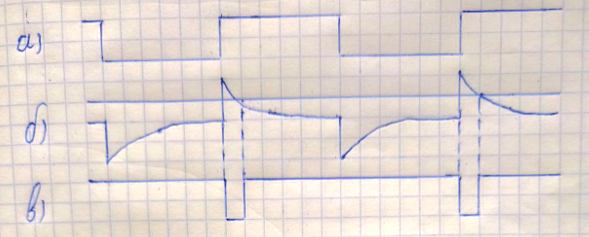 а)
б)
в)